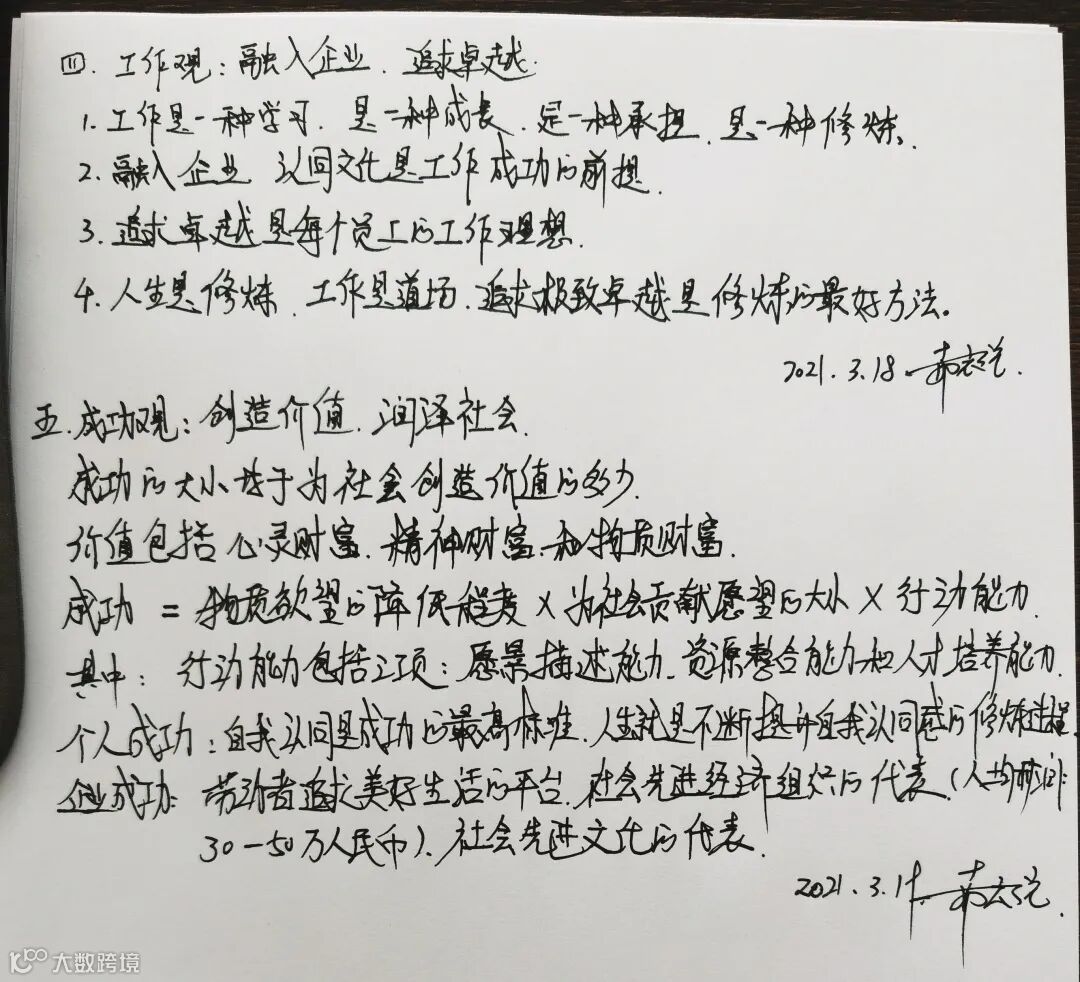 四. 工作观: 融入企业、追求卓越.
1. 工作是一种学习、是一种成长、是一种承担、是一种修炼.
2. 融入企业 认同文化是工作成功的前提.
3. 追求卓越是每个员工的工作理想.
4. 人生是修炼、工作是道场、追求极致卓越是修炼的最好方法。
2021.3.18
五. 成功观: 创造价值、润泽社会.
成功的大小在于为社会创造价值的多少.
价值包括心灵财富、精神财富和物质财富.
成功 = 物质欲望的降低程度 × 为社会贡献愿望的大小 × 行动能力.
其中: 行动能力包括三项: 愿景描述能力、资源整合能力和人才培养能力.
个人成功: 自我认同是成功的最高标准、人生就是不断提升自我认同感的修炼过程.
企业成功: 劳动者追求美好生活的平台、社会先进经济组织的代表、(人均利润:
30-50万人民币)、社会先进文化的代表.
2021.3.
大数跨境